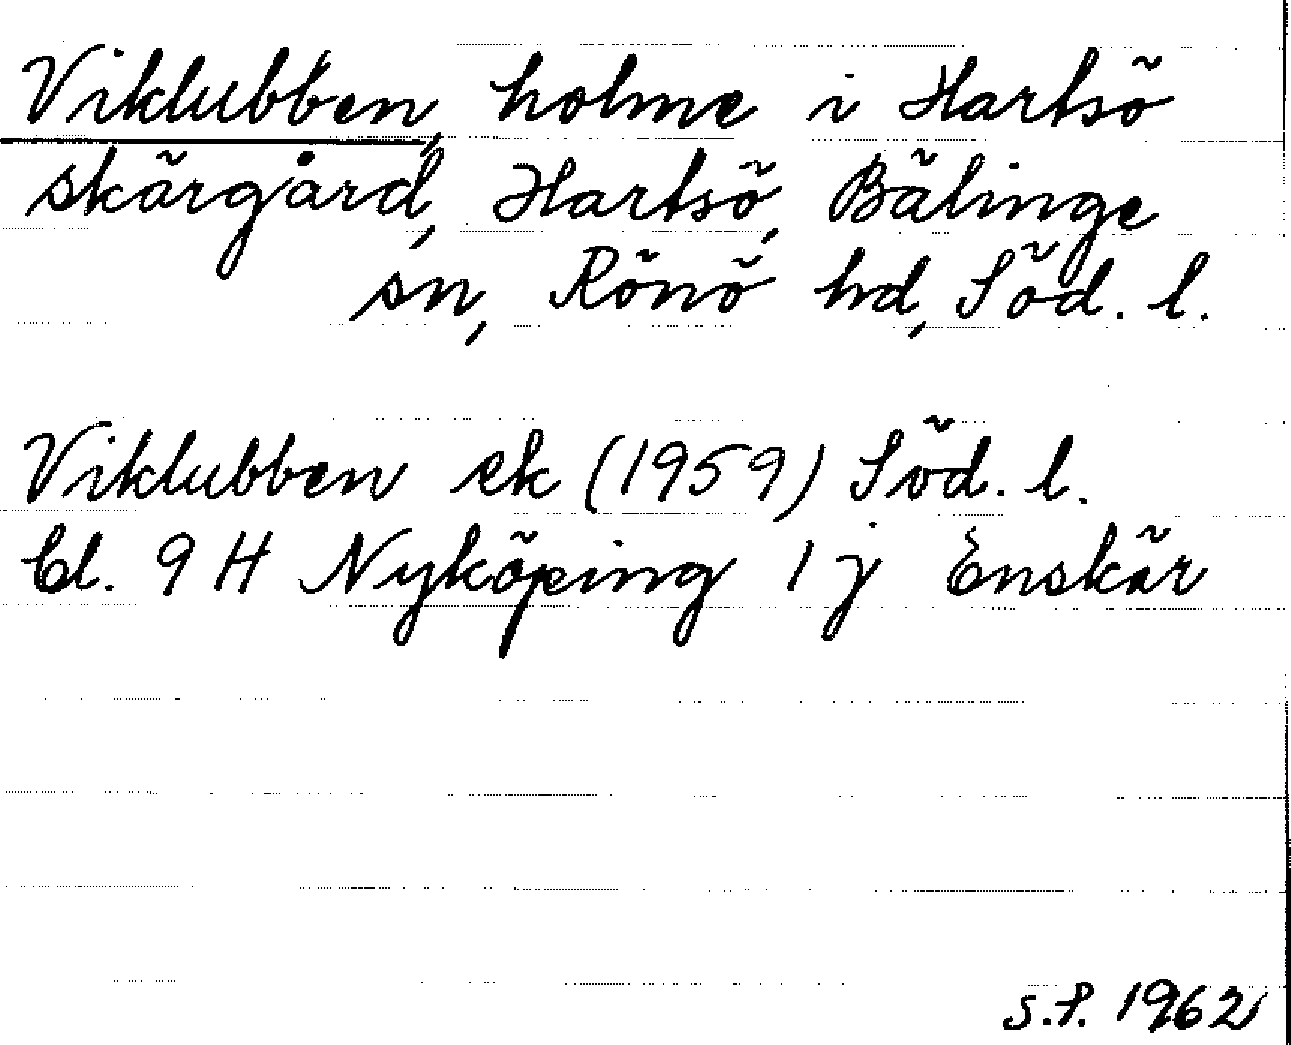 Viklubben, holme i Hartsö
skärgård, Hartsö, Bälinge
sn, Rönö hd, Söd. l.
Viklubben ek (1959) Söd. l.
bl. 9 H Nyköping 1 j Enskär
S.P. 1962